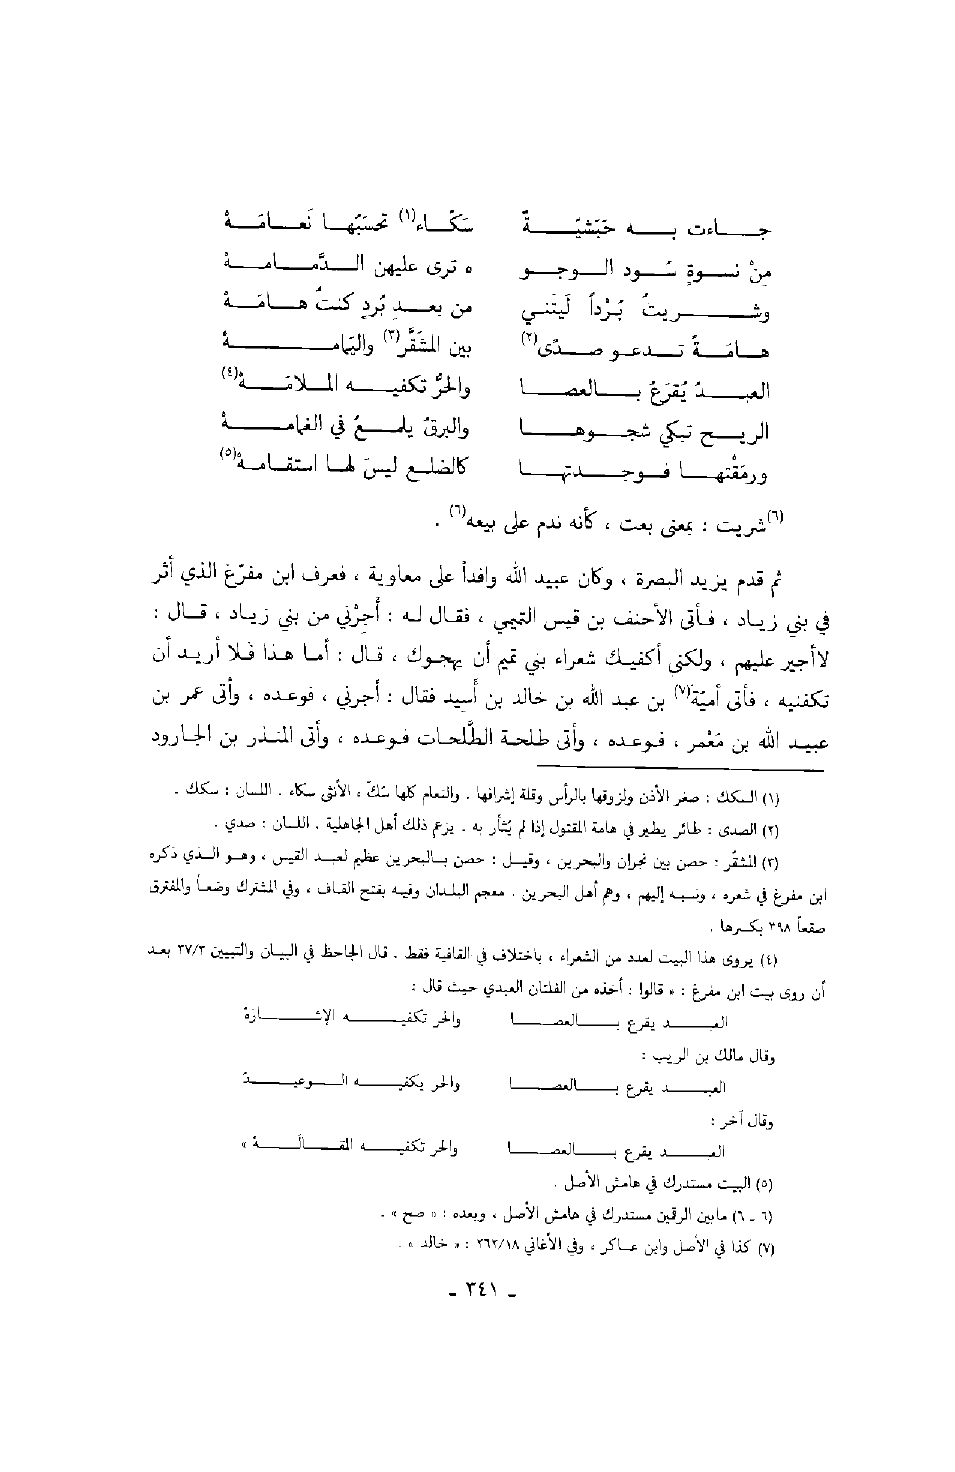 جاءت به حَبَشيّةٌ سَكّاء(١) تحسَبُها نَعامَهْ
مِنْ نسوةٍ سُود الوجو ه ترى عليهن الدَّمامهْ
وشريتُ بُرْداً لَيتَني من بعد بُردٍ كنتُ هامَهْ
هامَةً تدعو صدًى(٢) بين المُشَقَّر(٣) واليَمامهْ
العبدُ يُقرَعُ بالعصا والحرُّ تكفيه الملامَهْ(٤)
الريح تبكي شجوها والبرقُ يلمعُ في الغمامهْ
ورمَقْتها فوجدتها كالضلع ليسَ لها استقامه(٥)
(٦)شريت : بمعنى بعت ، كأنه ندم على بيعه(٦) .
ثم قدم يزيد البصرة ، وكان عبيد الله وافداً على معاوية ، فعرف ابن مفرّغ الذي أثر
في بني زياد ، فأتى الأحنف بن قيس التميمي ، فقال له : أجِرْني من بني زياد ، قال :
لاأجير عليهم ، ولكني أكفيك شعراء بني تميم أن يهجوك ، قال : أما هذا فلا أريد أن
تكفنيه ، فأتى أميّة(٧) بن عبد الله بن خالد بن أَسيد فقال : أجرني ، فوعده ، وأتى عمر بن
عبيد الله بن مَعْمر ، فوعده ، وأتى طلحة الطَّلحات فوعده ، وأتى المنذر بن الجارود
(١) السكك : صغر الأذن ولزوقها بالرأس وقلة إشرافها . والنعام كلها سُكّ ، الأنثى سكاء . اللسان : سكك .
(٢) الصدى : طائر يطير في هامة المقتول إذا لم يُثأر به . يزعم ذلك أهل الجاهلية . اللسان : صدي .
(٣) المشقّر : حصن بين نجران والبحرين ، وقيل : حصن بالبحرين عظيم لعبد القيس ، وهو الذي ذكره
ابن مفرغ في شعره ، ونسبه إليهم ، وهم أهل البحرين . معجم البلدان وفيه بفتح القاف ، وفي المشترك وضعاً والمفترق
صقعاً ٣٩٨ بكسرها .
(٤) يروى هذا البيت لعدد من الشعراء ، باختلاف في القافية فقط . قال الجاحظ في البيان والتبيين ٣٧/٣ بعد
أن روى بيت ابن مفرغ : « قالوا : أخذه من الفلتان العبدي حيث قال :
العبد يقرع بالعصا والحر تكفيه الإشارة
وقال مالك بن الريب :
العبد يقرع بالعصا والحر يكفيه الوعيدُ
وقال آخر :
العبد يقرع بالعصا والحر تكفيه المقالَهْ »
(٥) البيت مستدرك في هامش الأصل .
(٦ ـ ٦) مابين الرقمين مستدرك في هامش الأصل ، وبعده : « صح » .
(٧) كذا في الأصل وابن عساكر ، وفي الأغاني ٢٦٢/١٨ : « خالد » .
ـ ٣٤١ ـ